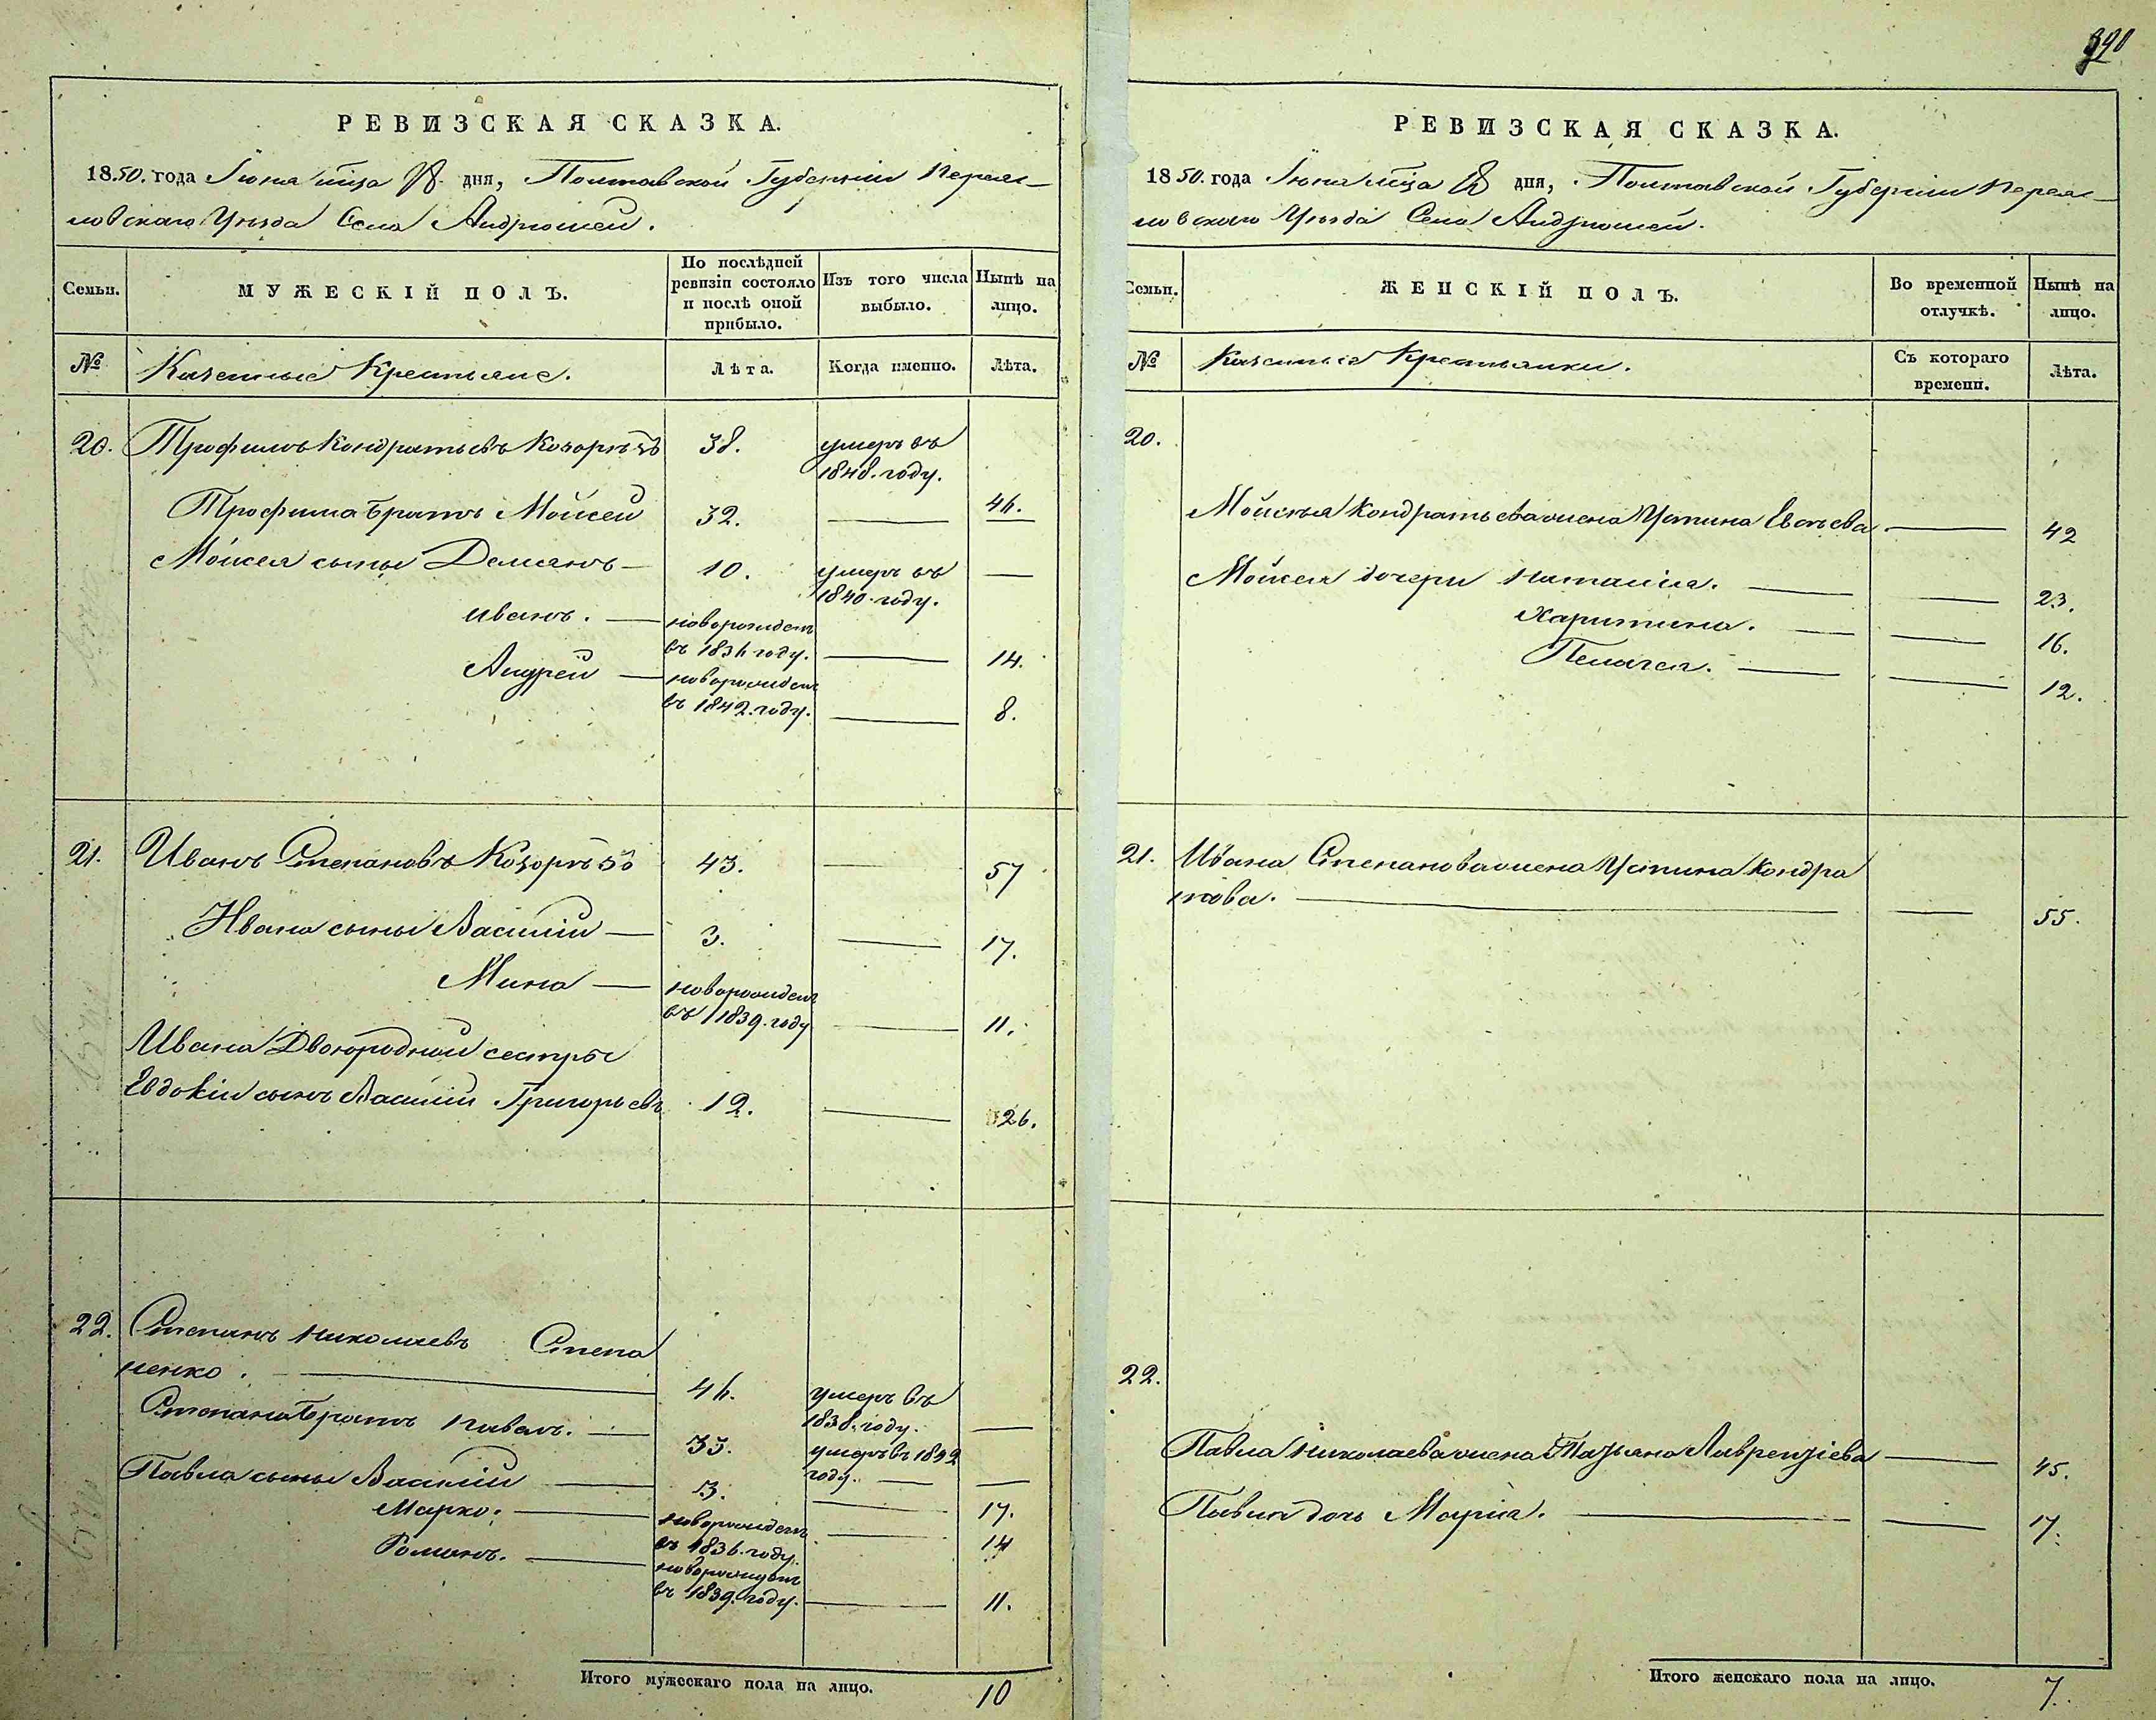 390
РЕВИЗСКАЯ СКАЗКА.
1850. года Іюня м͠ца 8. дня, Полтавской Губерніи Переяс-
ловскаго Уѣзда Села Андрюшей.
Семьи.
МУЖЕСКІЙ ПОЛЪ.
По послѣдней ревизіи состояло и послѣ оной прибыло.
Изъ того числа выбыло.
Нынѣ на лицо.
№
Казенные Крестьяне.
Лѣта.
Когда именно.
Лѣта.
20. Трофимъ Кондратьевъ Козорѣзъ 38. умеръ въ
1848. году.
Трофима братъ Мойсей 32. — 46.
Мойсея сыны Демьянъ — 10. умеръ въ —
1840. году.
Иванъ. — новорожден
въ 1836 году. — 14.
Андрей — новорожден
въ 1842. году. — 8.
21. Иванъ Степановъ Козорѣзъ 43. — 57
Ивана сыны Василій — 3. — 17.
Мина — новорожден
въ 1839. году — 11.
Ивана Двоюродной сестры
Евдокіи сынъ Василій Григорьевъ 12. — 26.
22. Степанъ Николаевъ Степа
ненко. — 46. умеръ въ
1838. году. —
Степана братъ Павелъ. — 33. умеръ въ 1842
году. — —
Павла сыны Василій — 3. — 17.
Марко. — новорожден — 14
въ 1836. году.
Романъ. — новорожден
въ 1839. году. — 11.
Итого мужескаго пола на лицо. 10
РЕВИЗСКАЯ СКАЗКА.
1850. года Іюня м͠ца 8 дня, Полтавской Губерніи Переяс-
ловскаго Уѣзда Села Андрюшей.
Семьи.
ЖЕНСКІЙ ПОЛЪ.
Во временной отлучкѣ.
Нынѣ на лицо.
№
Казенные Крестьянки.
Съ котораго времени.
Лѣта.
20.
Мойсѣя Кондратьева жена Устина Евсѣева — 42
Мойсея дочери Наталія. — — 23.
Харитина. — — 16.
Пелагея. — — 12.
21. Ивана Степанова жена Устина Кондра
това. — — 55.
22.
Павла Николаева жена Татьяна Лаврентіева — 45.
Павла дочь Марія. — — 17.
Итого женскаго пола на лицо. 7.